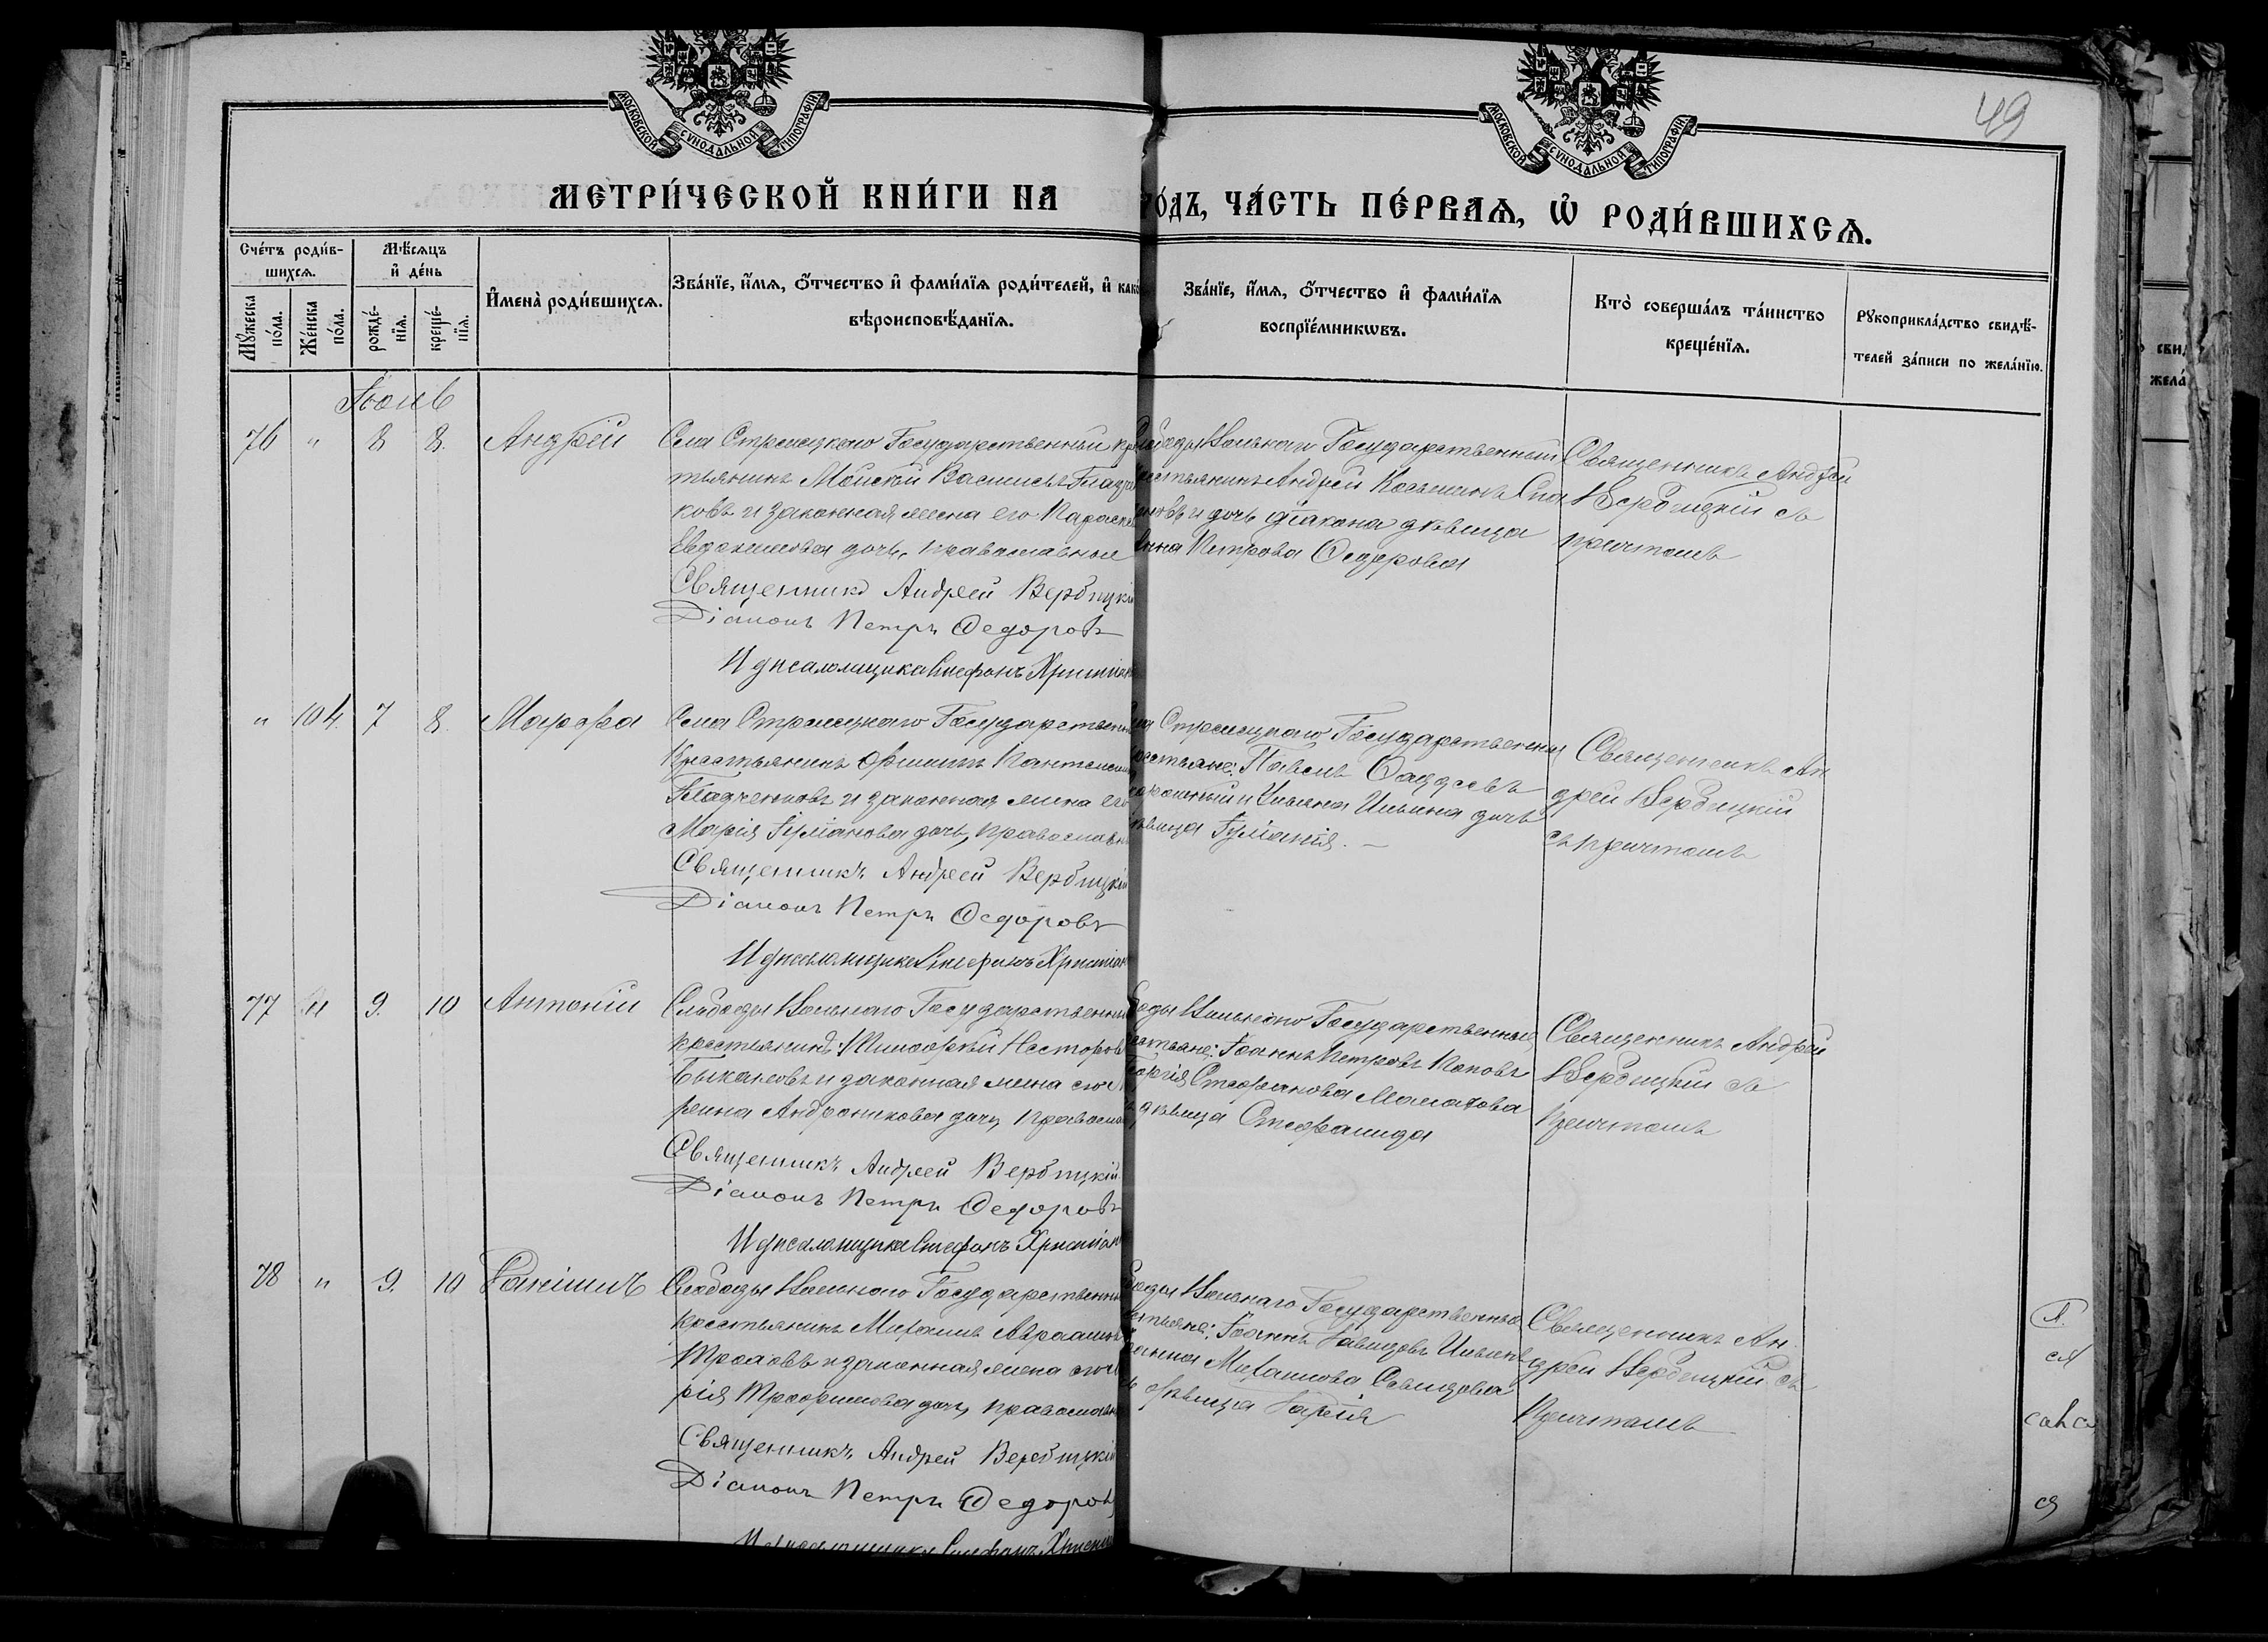 МОСКОВСКОЙ СѴНОДАЛЬНОЙ ТИПОГРАФІИ.
МОСКОВСКОЙ СѴНОДАЛЬНОЙ ТИПОГРАФІИ.
49
МЕТРИ́ЧЕСКОЙ КНИ́ГИ НА
РО́ДЪ, ЧА́СТЬ ПЕ́РВАѦ, Ѡ҆ РОДИ́ВШИХСѦ.
Сче́тъ роди́в-
шихсѧ.
Мꙋ́жеска
по́ла.
Же́нска
по́ла.
Мѣ́сѧцъ
и҆ де́нь
рожде́-
нїѧ.
креще́-
нїѧ.
И҆мена̀ роди́вшихсѧ.
Зва́нїе, и҆́мѧ, ѻ҆́тчество и҆ фами́лїѧ роди́телей, и҆ како
вѣроисповѣ́данїѧ.
Зва́нїе, и҆́мѧ, ѻ҆́тчество и҆ фами́лїѧ
воспрїе́мникѡвъ.
Кто̀ соверша́лъ та́инство
креще́нїѧ.
Рꙋкоприкла́дство свидѣ́-
телей за́писи по жела́нїю.
Іюль
76 " 8 8. Андрей
Села Стрелецкаго Государственный кре
тьянинъ Василіевъ
ковъ и законная жена его Параске
Евдокимова дочь, православные
Священникъ Андрей Вербицкі
Діаконъ Петръ Ѳедоровъ
И д псаломщика Стефанъ Христіан
Вольнаго Государственный
рестьянинъ Андрей Косьминъ
дочь діакона дѣвица
Анна Петрова Ѳедорова
Священникъ Андрей
Вербицкій съ
причтомъ
" 104. 7 8. Марфа
Села Стрелецкаго Государственны
Крестьянинъ
Гладченковъ и законная жена его
Марія Іуліанова дочь, православны
Священникъ Андрей Вербицкій
Діаконъ Петръ Ѳедоровъ
И д псаломщика Стефанъ Христіан
ла Стрелецкаго Государственные
рестьяне: Павелъ Ѳаддеевъ
Ильина дочь
ѣвица Іуліанія.
Священникъ Ан
дрей Вербицкій
съ причтомъ
77 " 9. 10 Антоній
Слободы Вольнаго Государственный
крестьянинъ: Тимофей Несторовъ
Быкановъ и законная жена его
рина Андроникова дочь, православ
Священникъ Андрей Вербицкій
Діаконъ Петръ Ѳедоровъ
И д псаломщика Стефанъ Христіан
боды Вольнаго Государственные
рестьяне: Іоаннъ Петровъ Поповъ
Стефанова Малахова
дѣвица Стефанида
Священникъ Андрей
Вербицкій съ
Причтомъ
78 " 9. 10 Даніилъ
Слободы Вольнаго Государственны
крестьянинъ Михаилъ Авраамов
и законная жена его
рія Трофимова дочь, православн
Священникъ Андрей Вербицкій
Діаконъ Петръ Ѳедоровъ
Стефанъ
боды Вольнаго Государственные
рестьяне: Іоаннъ Давидовъ
Михаилова
дѣвица Дарія
Священникъ Ан
дрей Вербицкій съ
Причтомъ